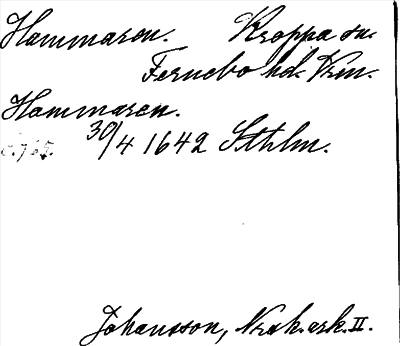 Hammaren. Kroppa sn.
Fernebo hd. Vrm.
Hammaren.
30/4 1642 Sthlm.
Johansson, Norak. ark. II.